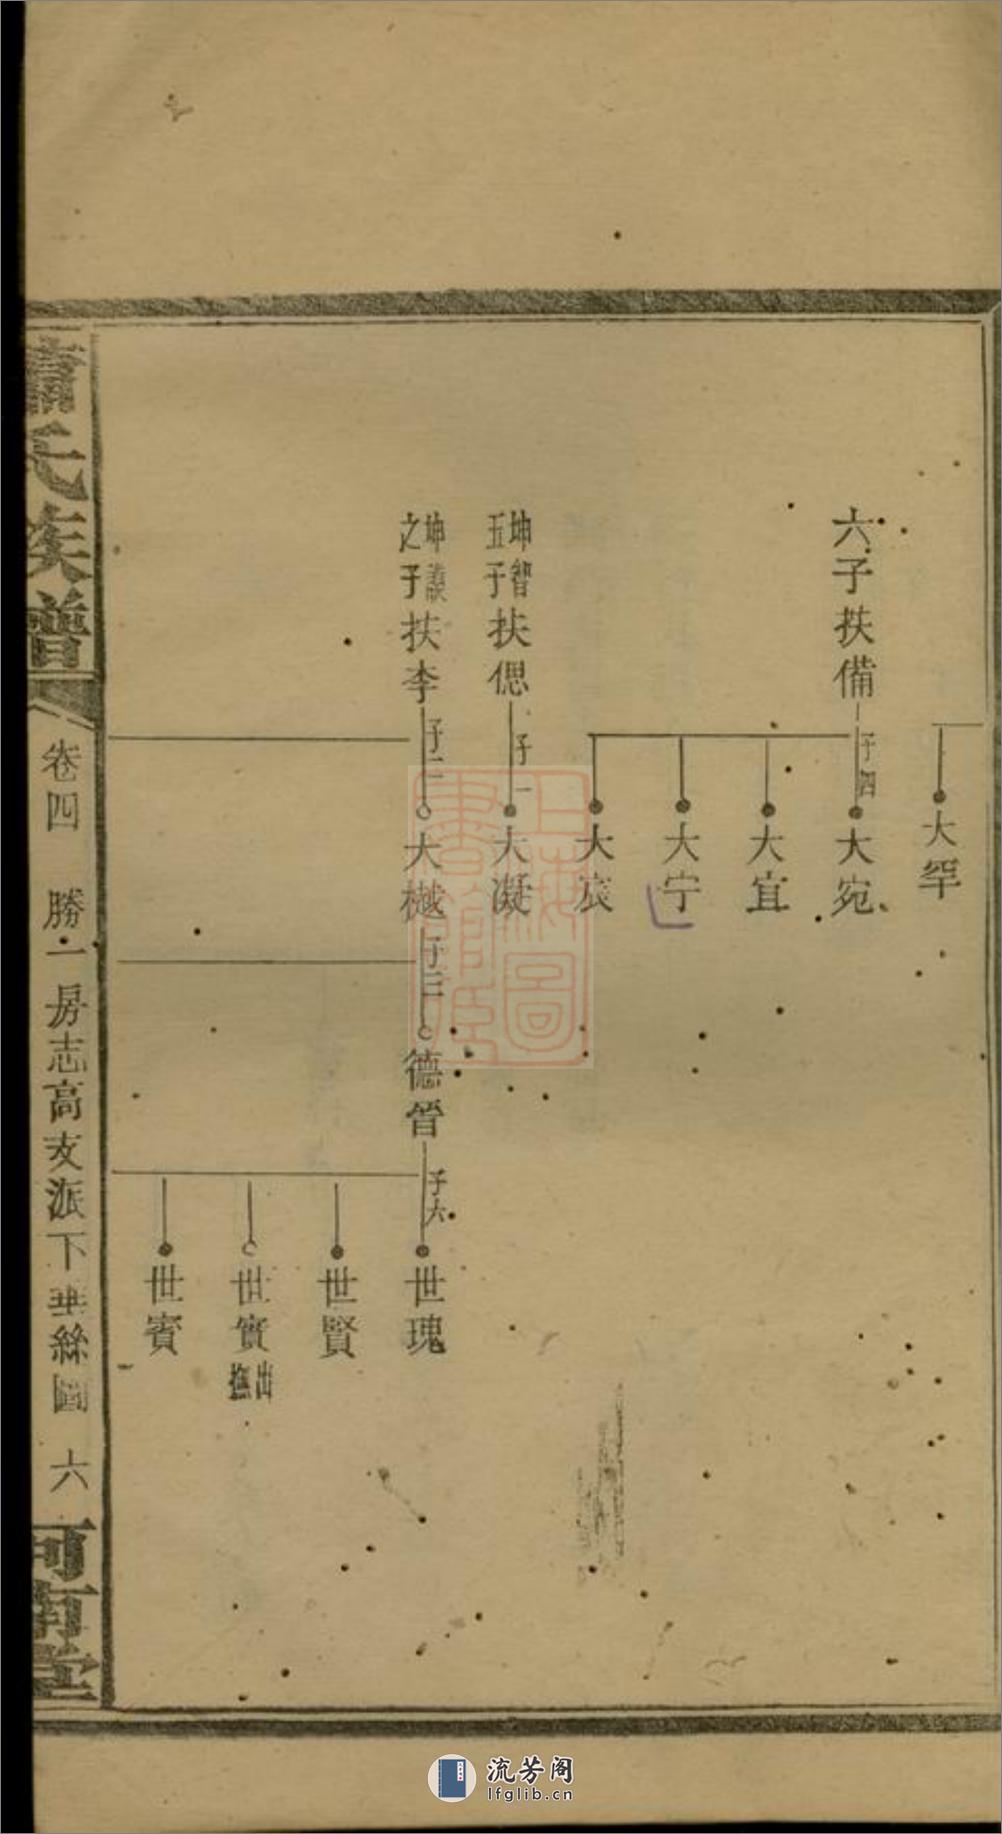 大罕
六子扶備
子四
大宛
大宜
大宁
大宸
坤智
五子
扶偲
子一
大凝
坤
之子
扶李
子二
大樾
子三
德晉
子六
世瑰
世賢
世實
出撫
世賓
氏族譜
卷四
勝一房志高支派下垂絲圖
六
河南堂
上海圖書館藏
流芳阁
lfglib.cn